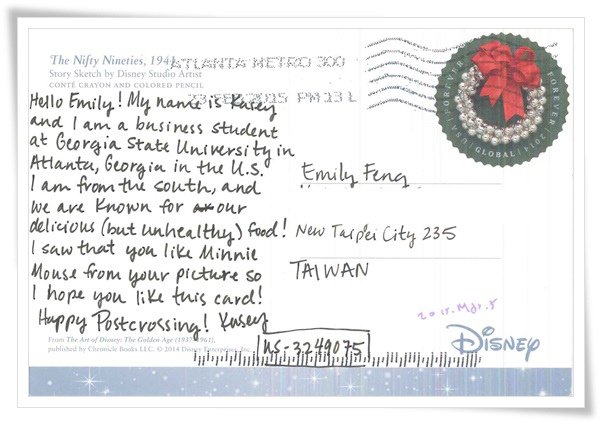 The Nifty Nineties, 1941
Story Sketch by Disney Studio Artist
CONTÉ CRAYON AND COLORED PENCIL
ATLANTA METRO 300
23 FEB 2015 PM 13 L
FOREVER
FOREVER
USA
GLOBAL
2014
Hello Emily! My name is Kasey
and I am a business student
at Georgia State University in
Atlanta, Georgia in the U.S.
I am from the south, and
we are known for our
delicious (but unhealthy) food!
I saw that you like Minnie
Mouse from your picture so
I hope you like this card!
Happy Postcrossing! Kasey
Emily Feng
New Taipei City 235
TAIWAN
2015. Mar. 5
US-3249075
From The Art of Disney: The Golden Age (1937-1961),
published by Chronicle Books LLC. © 2014 Disney Enterprises, Inc.
DISNEY